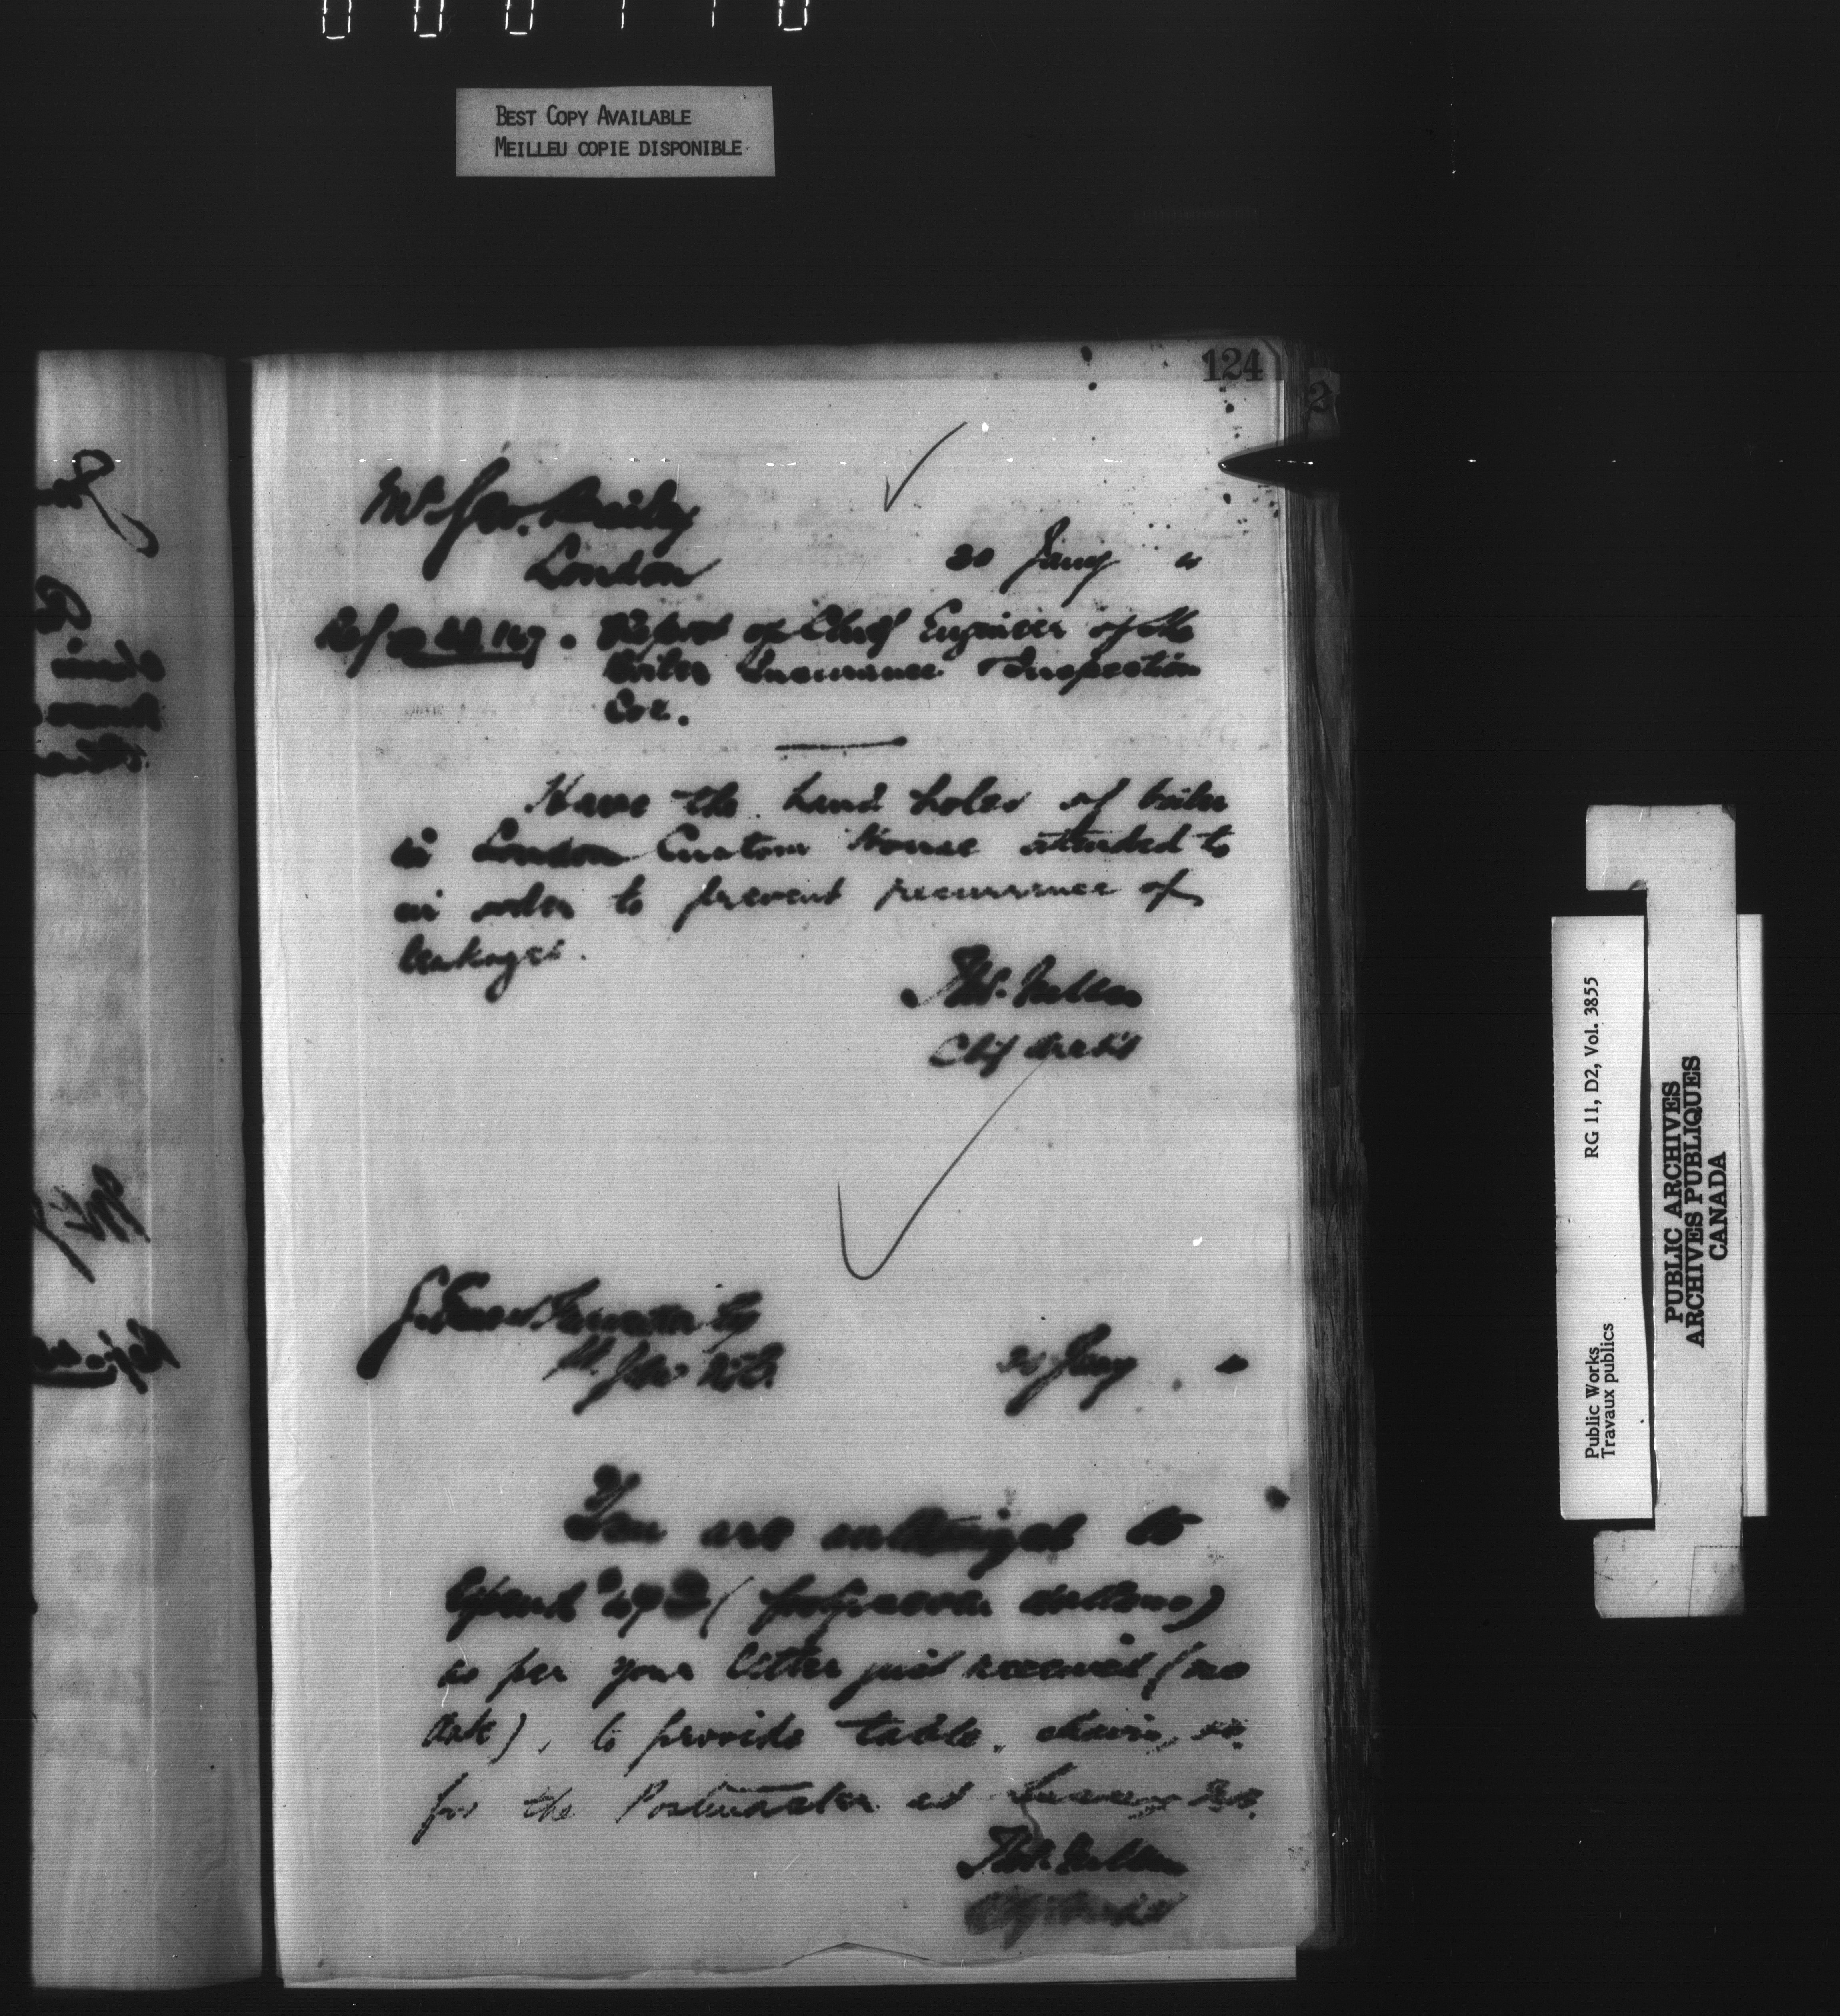 BEST COPY AVAILABLE
MEILLEU COPIE DISPONIBLE
124
Mr. Jno.
London
30 Jany "
Ref
Report of Chief Engineer of the
Boiler Insurance & Inspection
Coy.
Have the hand holes of boiler
in London Custom House attended to
in order to prevent recurrence of
leakages.
Thos. Fuller
Chf Archt
St. John N.B.
30 Jany "
You are authorized to
Expend $47 (forty seven dollars)
as per your letter just received (no
date), to provide table, chairs, &c.
for the Postmaster at Sussex N.B.
Thos. Fuller
Chf Archt
RG 11, D2, Vol. 3855
Public Works
Travaux publics
PUBLIC ARCHIVES
ARCHIVES PUBLIQUES
CANADA